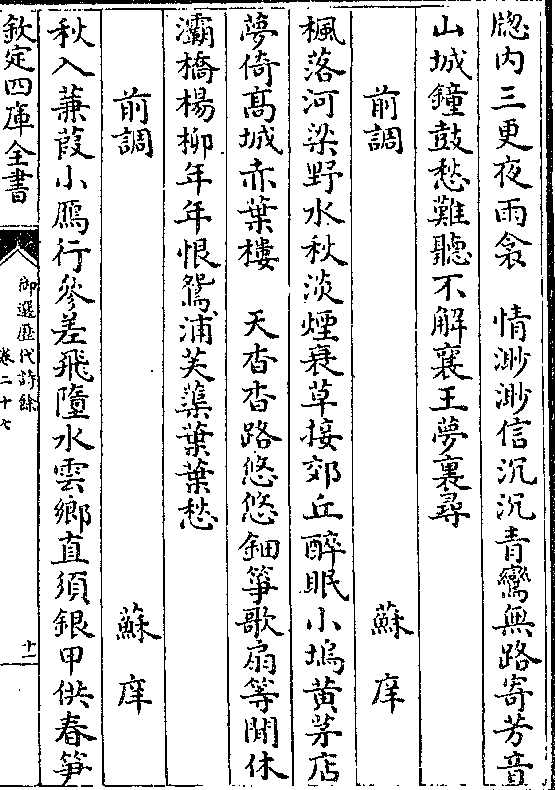 牕内三更夜雨衾　情渺渺信沉沉青鸞無路寄芳音
山城鐘鼓愁難聽不解襄王夢裏尋
前調　蘇庠
楓落河梁野水秋淡煙衰草接郊丘醉眠小塢黄茅店
夢倚髙城赤葉樓　天杳杳路悠悠鈿箏歌扇等閒休
灞橋楊柳年年恨鴛浦芙蕖葉葉愁
前調　蘇庠
秋入蒹葭小鴈行參差飛墮水雲鄉直須銀甲供春笋
欽定四庫全書
御選歴代詩餘
卷二十七
十一